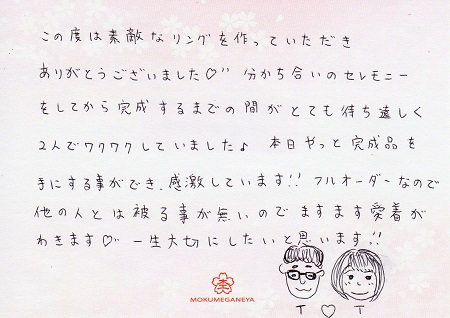 この度は素敵なリングを作っていただき
ありがとうございました♡" 分かち合いのセレモニー
をしてから完成するまでの間がとても待ち遠しく
2人でワクワクしていました♪ 本日やっと完成品を
手にする事ができ、感激しています!! フルオーダーなので
他の人とは被る事が無いのでますます愛着が
わきます♡" 一生大切にしたいと思います!!
MOKUMEGANEYA
T ♡ T